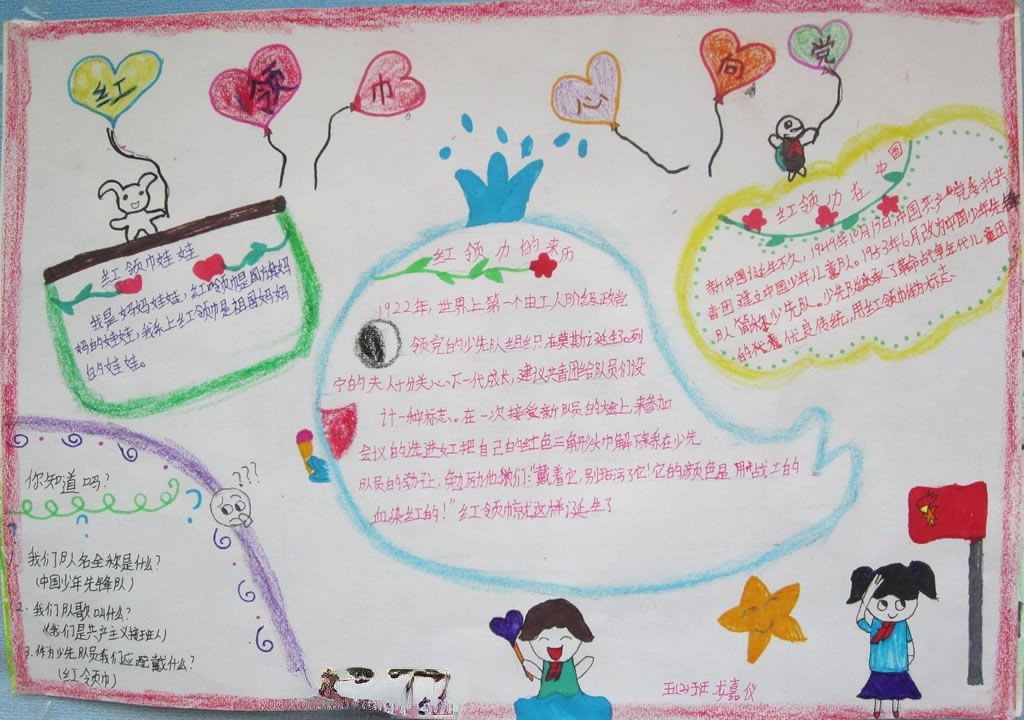 红领巾心向党
红领巾娃娃
我是妈妈娃娃,红领巾是国旗妈
妈的娃娃,我系上红领巾是祖国妈妈
的娃娃。
红领巾的来历
1922年,世界上第一个由工人阶级政党
领党的少先队组织在莫斯记诞生。列
宁的夫人十分关心下一代成长,建议共青团给队员们设
计一种标志。在一次接受新队员的大会上,来参加
会议的进进女工把自己的红色三角形头巾解下来系在少先
队员的劲让,勉励他们:"戴着它,别沾污了它!它的颜色是用战士的
血染红的!"红领巾就这样诞生了
红领巾在中国
新中国诞生不久,1949年10月13日,中国共产党委托共
青团建立中国少年儿童队。1953年6月改为中国少年先锋
队,简称少先队。少先队继承了革命战争年代儿童团
的优良传统,用红领巾作为标志。
你知道吗?
???
我们队名全称是什么?
(中国少年先锋队)
2.我们队歌叫什么?
《我们是共产主义接班人》
3.作为少先队员我们应配戴什么?
(红领巾)
五(2)班 龙嘉仪